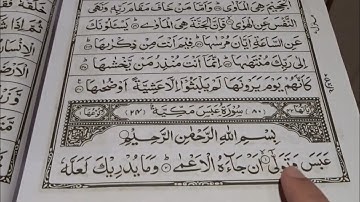 الْجَحِيمَ هِيَ الْمَأْوٰى وَاَمَّا مَنْ خَافَ مَقَامَ رَبِّهٖ وَنَهَى
النَّفْسَ عَنِ الْهَوٰى فَاِنَّ الْجَنَّةَ هِيَ الْمَأْوٰى يَسْـَٔلُوْنَكَ
عَنِ السَّاعَةِ اَيَّانَ مُرْسٰىهَا فِيْمَ اَنْتَ مِنْ ذِكْرٰىهَا
اِلٰى رَبِّكَ مُنْتَهٰىهَا اِنَّمَا اَنْتَ مُنْذِرُ مَنْ يَّخْشٰىهَا
كَاَنَّهُمْ يَوْمَ يَرَوْنَهَا لَمْ يَلْبَثُوْا اِلَّا عَشِيَّةً اَوْ ضُحٰىهَا
سُوْرَةُ عَبَسَ مَكِّيَّةٌ
بِسْمِ اللهِ الرَّحْمٰنِ الرَّحِيْمِ
عَبَسَ وَتَوَلّٰى اَنْ جَآءَهُ الْاَعْمٰى وَمَا يُدْرِيْكَ لَعَلَّهٗ